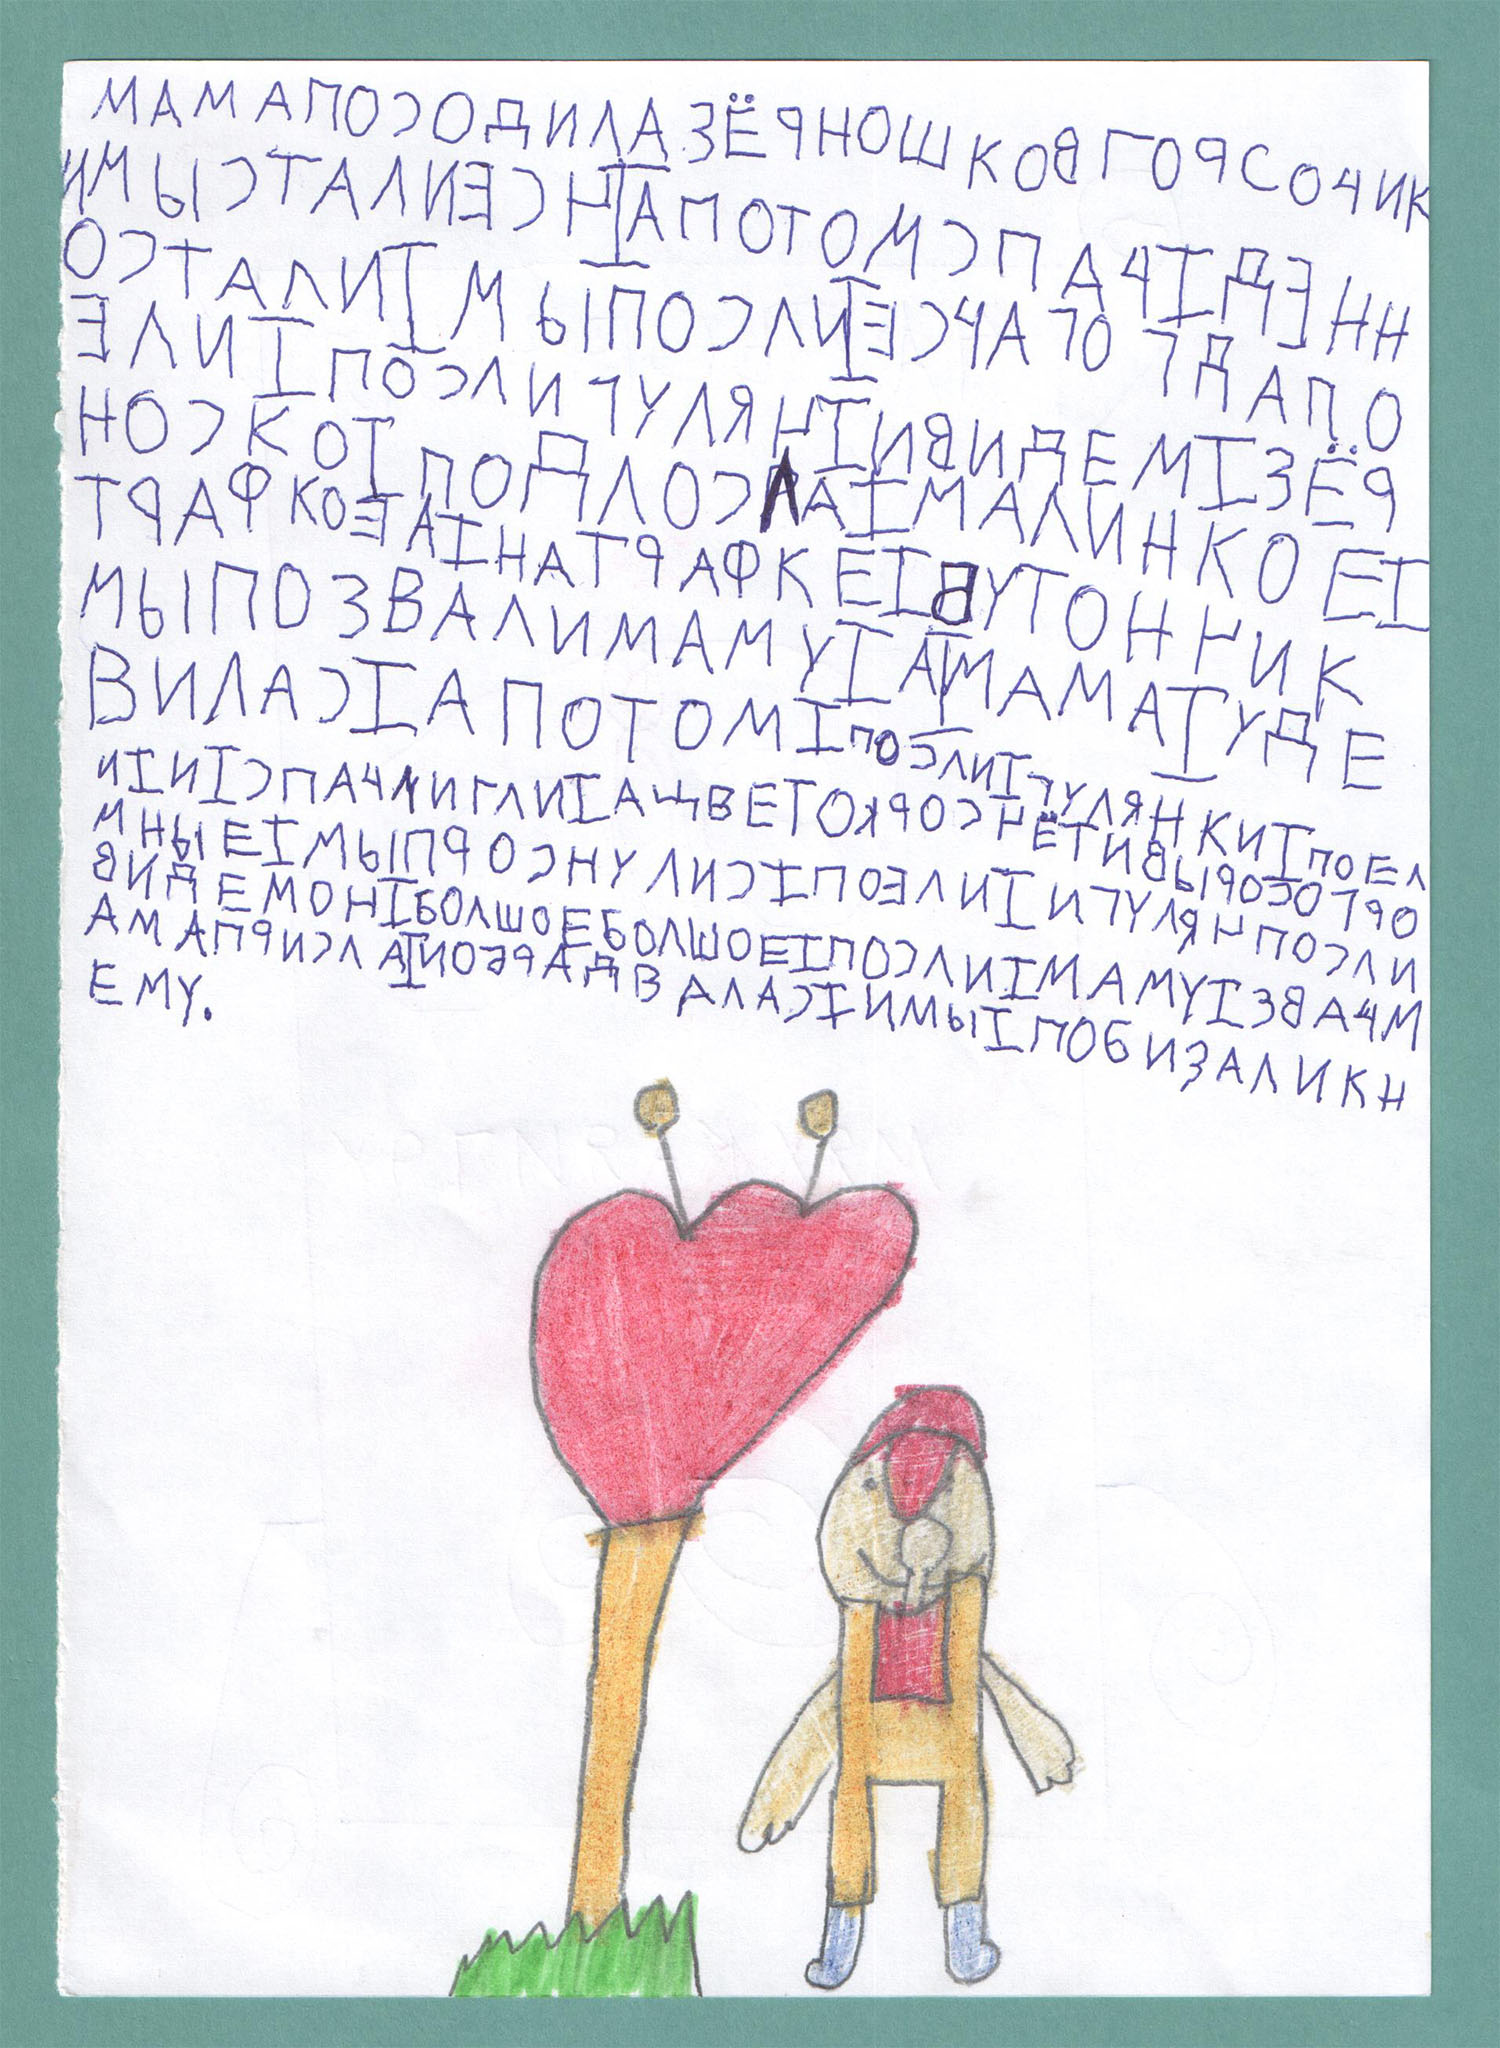 МАМАПОСОДИЛАЗЁРНОШКОВГОРСОЧИК
ИМЫСТАЛИЕСНІАПОТОМСПАЧІДЕНН
ОСТАЛИІМЫПОСЛИІЕСЧАГОГДАПО
ЕЛИІПОСЛИГУЛЯНІИВИДЕМІЗЁР
НОСКОІПОДЛОСЛАІМАЛИНКОЕІ
ТРАФКОЕАІНАТРАФКЕІВУТОННИК
МЫПОЗВАЛИМАМУІАІМАМАІУДЕ
ВИЛАСІАПОТОМІПОСЛИІГУЛЯНКИІПОЕЛ
ИІИІСПАЧ ИГЛИІАЦВЕТОКРОСНЁТИВЫРОСОГРО
МНЫЕІМЫПРОСНУЛИСІПОЭЛИІИГУЛЯНПОСЛИ
ВИДЕМОНІБОЛШОЕБОЛШОЕІПОСЛИІМАМУІЗВАЧМ
АМАПРИСЛАІИОБРАДВАЛАСІИМЫІПОБИЗАЛИКН
ЕМУ.